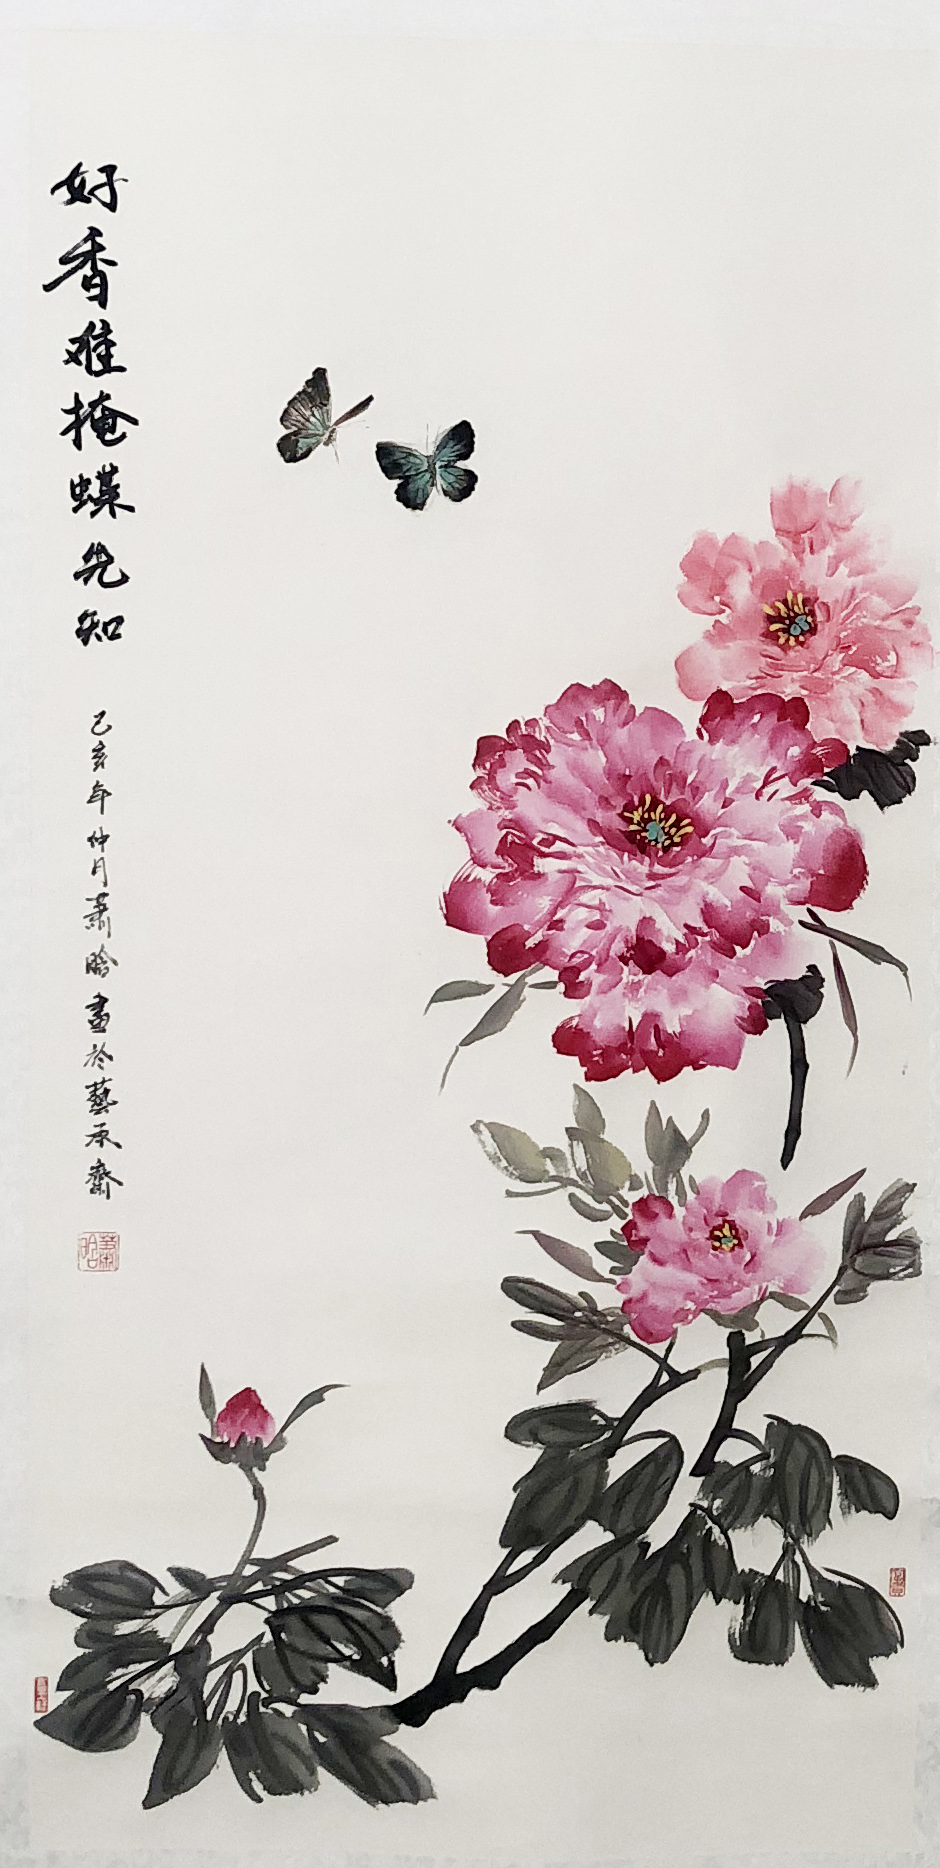 好香难掩蝶先知
己亥年仲月萧晗畫於藝承齋
萧晗